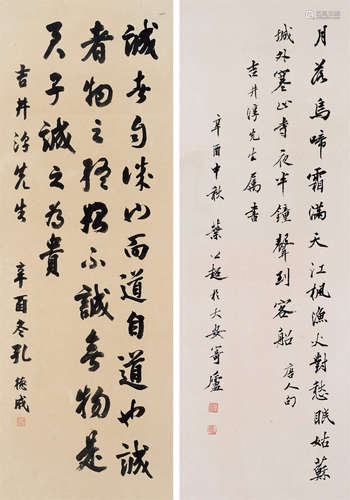 月落烏啼霜滿天江楓漁火對愁眠姑蘇
城外寒山寺夜半鐘聲到客船 唐人句
吉井淳先生属書
辛酉中秋 葉公超於大安寄廬
誠者自成也而道自道也誠
者物之終始不誠無物是
君子誠之為貴
吉井淳先生 辛酉冬孔德成